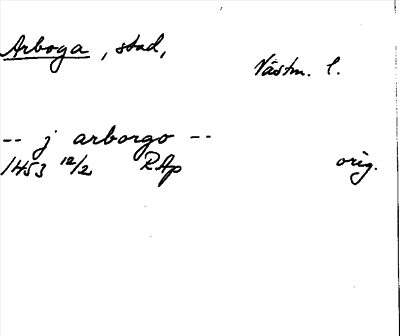 Arboga, stad,
Västm. l.
-- j arborgo --
1453 12/2 RAp orig.